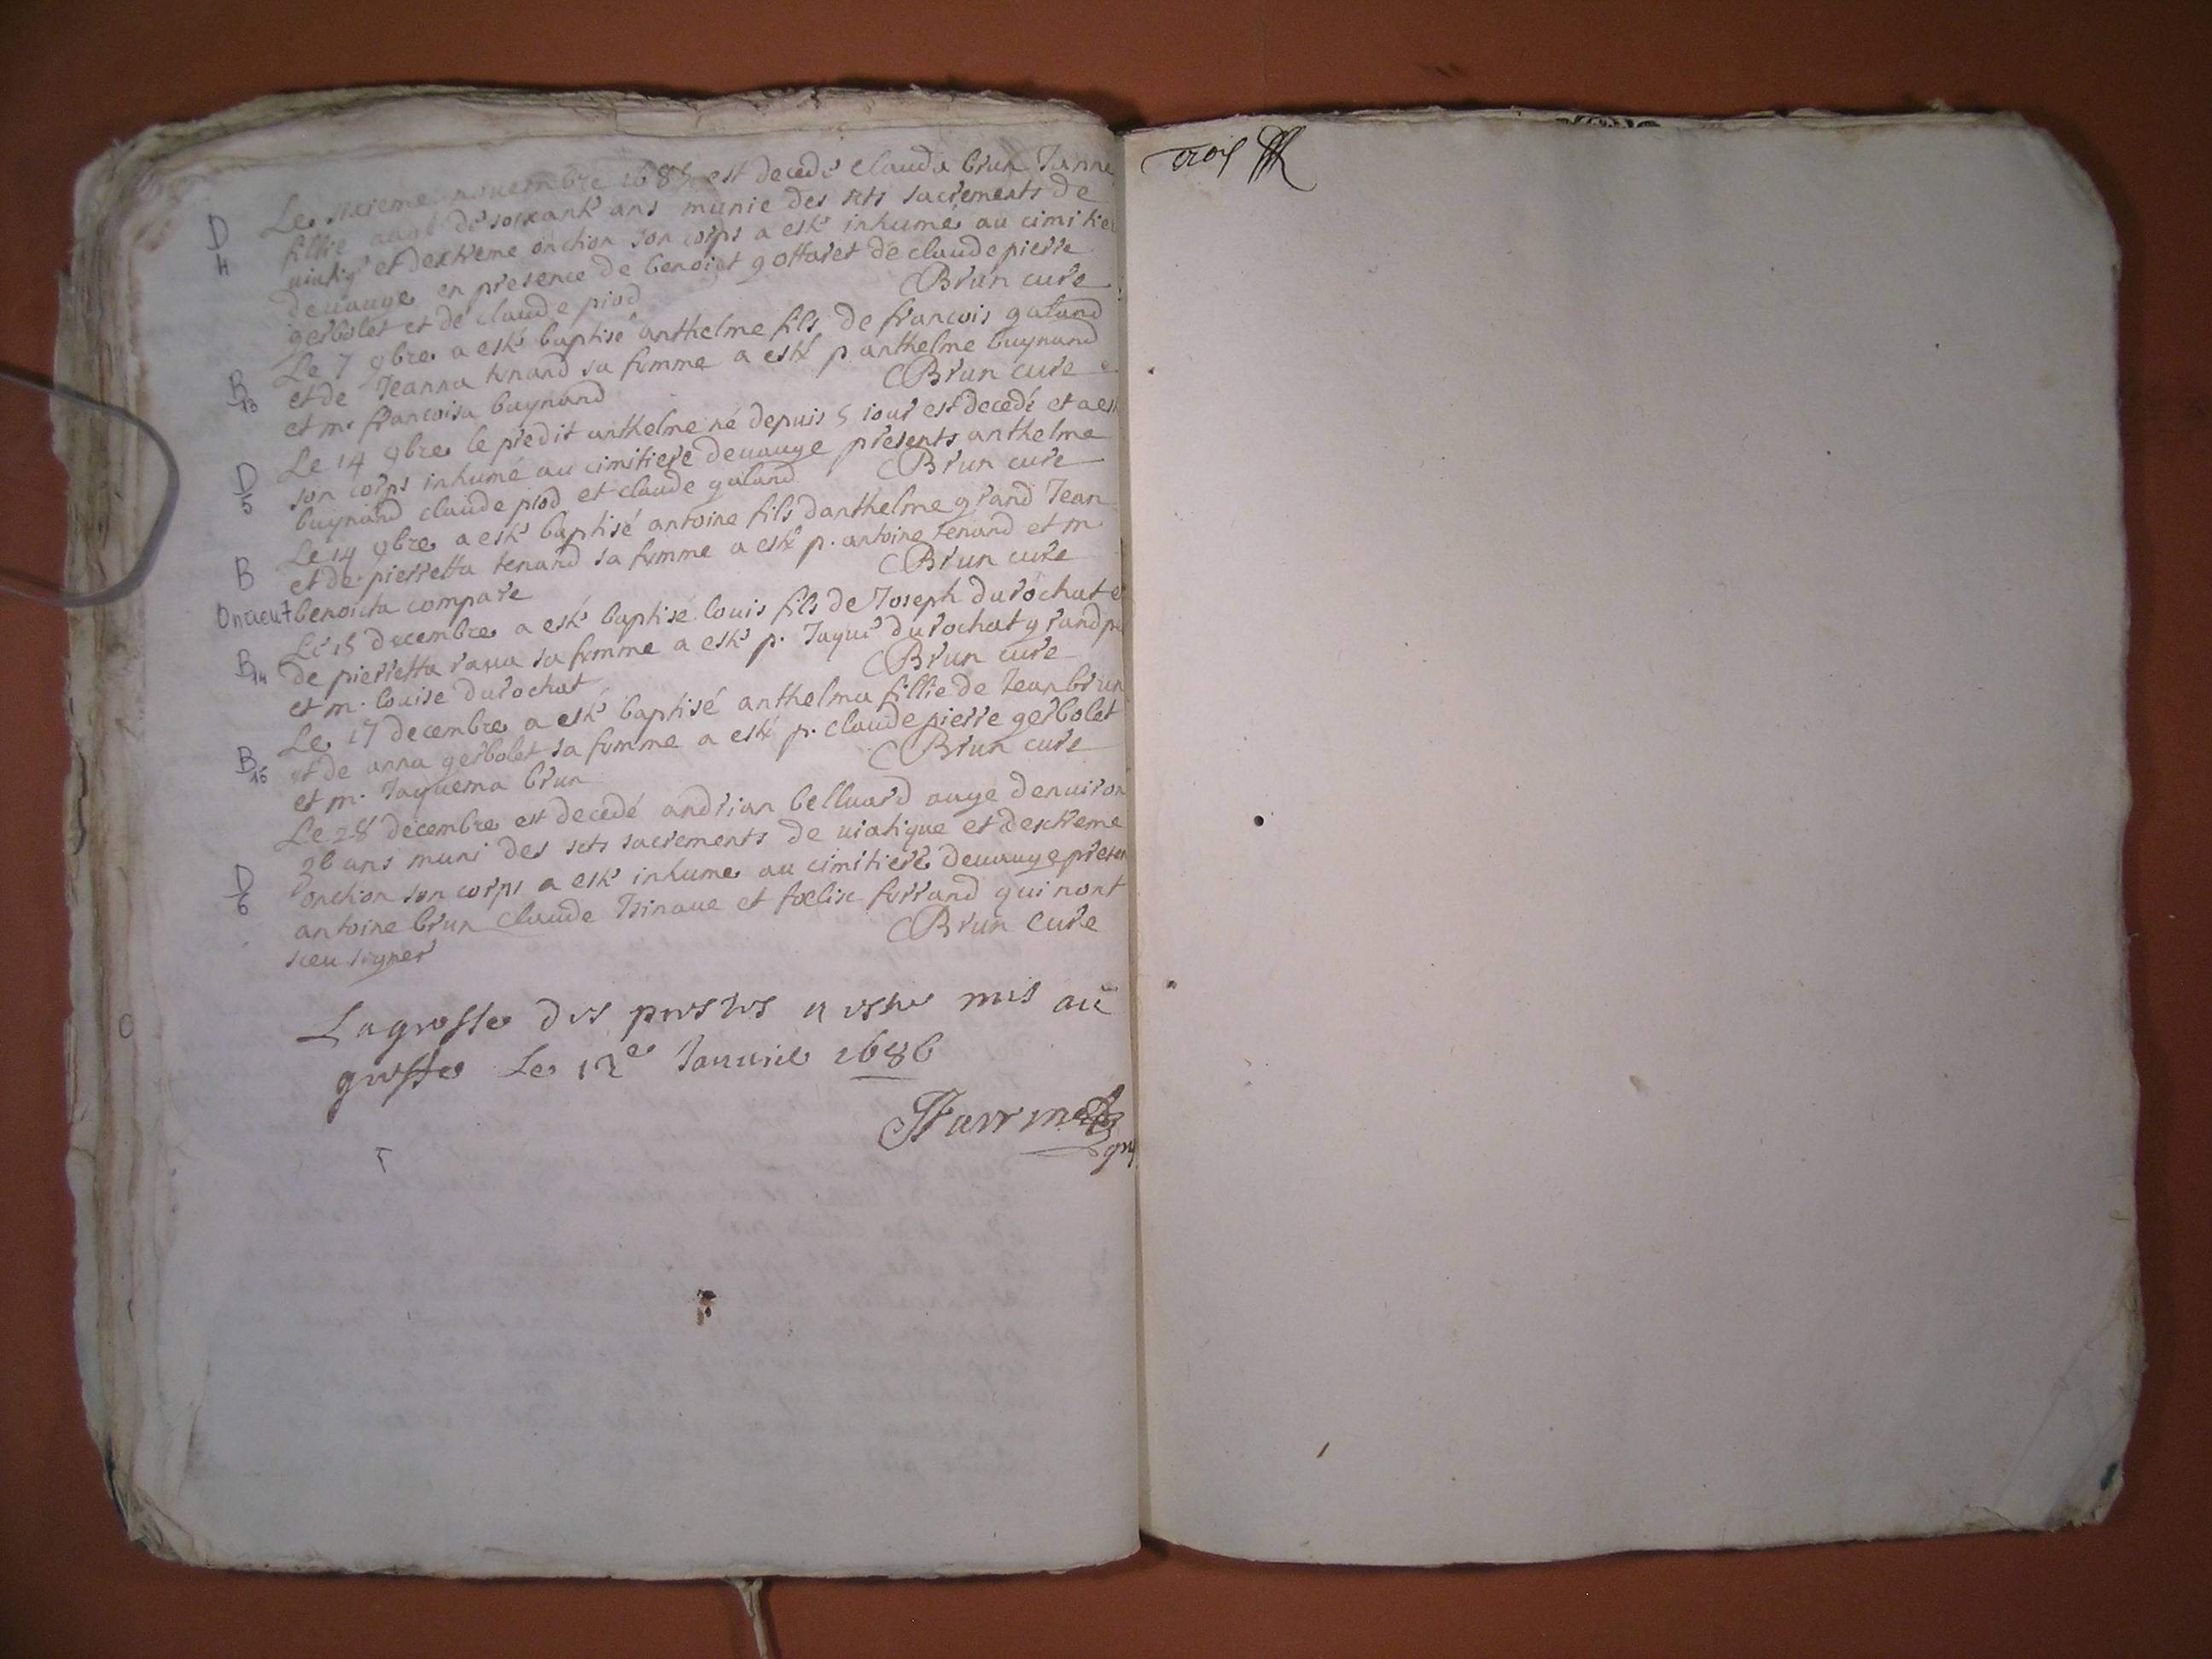 D Le sixieme nouembre 1685 est decedé clauda brun Janne
4 fillie aagé de soixante ans munie des scts sacrements de
uiatiq et dextreme onction son corps a esté inhumé au cimitie
deuauge en presence de benoict gottaret de claude pierre
gerbolet et de claude piod Brun curé
B 13 Le 7 9bre a esté baptisé anthelme fils de francois galand
et de Jeanna tenand sa femme a esté p. anthelme buynand
et m. francoisa buynand Brun curé
D 5 Le 14 9bre le predit anthelme né depuis 5 iour est decedé et a est
son corps inhumé au cimitiere deuauge presents anthelme
buynand claude piod et claude galand Brun curé
B Le 14 9bre a esté baptisé antoine fils danthelme grand Jean
et de pierretta tenand sa femme a esté p. antoine tenand et m.
Oncieu benoicta compare Brun curé
B 14 Le 15 decembre a esté baptisé louis fils de Joseph durochat et
de pierretta raua sa femme a esté p. Jaque durochat grand pe
et m. louise durochat Brun curé
B 15 Le 17 decembre a esté baptisé anthelma fillie de Jean brun
et de anna gerbolet sa femme a esté p. claude pierre gerbolet
et m. Jaquema brun Brun curé
D 6 Le 28 decembre est decedé andrian belluard auge denuiron
36 ans muni des scts sacrements de uiatique et dextreme
onction son corps a esté inhumé au cimitiere deuauge presen
antoine brun claude Tsinaue et foelise ferrand qui nont
sceu signer Brun Curé
Lagrosse des a esté mis au
greffe Le 12e Januier 1686
trois